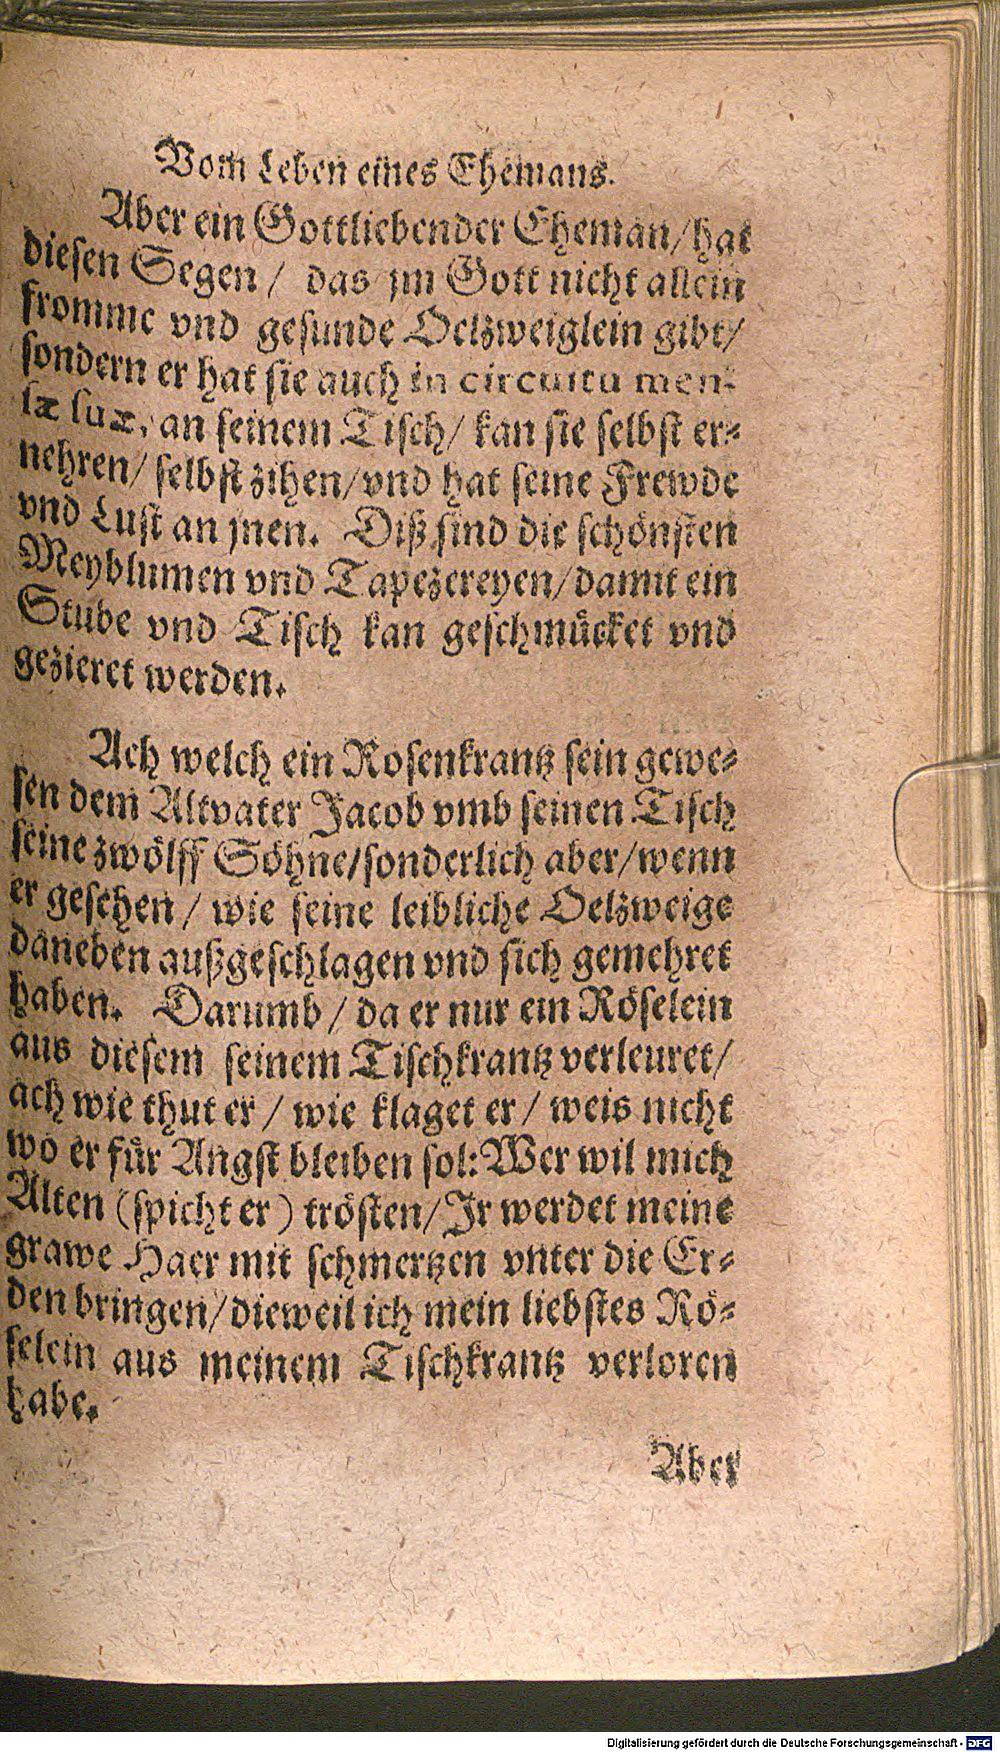 Vom Leben eines Ehemans.
Aber ein Gottliebender Eheman/ hat
diesen Segen / das jm Gott nicht allein
fromme vnd gesunde Oelzweiglein gibt/
sondern er hat sie auch in circuitu men-
sæ suæ, an seinem Tisch/ kan sie selbst er-
nehren/ selbst zihen/ vnd hat seine Frewde
vnd Lust an jnen. Diß sind die schönsten
Meyblumen vnd Tapezereyen/ damit ein
Stube vnd Tisch kan geschmücket vnd
gezieret werden.
Ach welch ein Rosenkrantz sein gewe-
sen dem Altvater Jacob vmb seinen Tisch
seine zwölff Söhne/ sonderlich aber/ wenn
er gesehen / wie seine leibliche Oelzweige
daneben außgeschlagen vnd sich gemehret
haben. Darumb / da er nur ein Röselein
aus diesem seinem Tischkrantz verleuret/
ach wie thut er / wie klaget er / weis nicht
wo er für Angst bleiben sol: Wer wil mich
Alten (spicht er) trösten/ Jr werdet meine
grawe Haer mit schmertzen vnter die Er-
den bringen/ dieweil ich mein liebstes Rö-
selein aus meinem Tischkrantz verloren
habe.
Aber
Digitalisierung gefördert durch die Deutsche Forschungsgemeinschaft - DFG